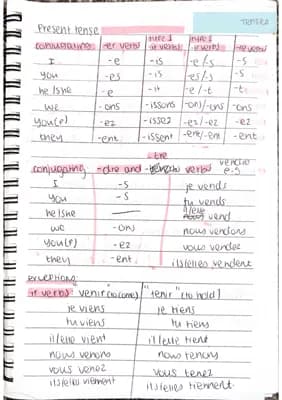 Present tense
conjugating -er verbs type 1 -ir verbs type 2 ir verbs -re verbs
I -e -is -e/-s -s
you -es -is -es/-s -s
he/she -e -it -e/-t
we -ons -issons -on/-ons -ons
you(p) -ez -issez -ez/-ez -ez
they -ent -issent -ent/-ent -ent
-dre
conjugating -dre and verbs vendre e.g
I -s je vends
you -s tu vends
he/she — il/elle vend
we -ons nous vendons
you(p) -ez vous vendez
they -ent. ils/elles vendent
exceptions:
ir verbs: "venir" (to come) "tenir" (to hold)
je viens je tiens
tu viens tu tiens
il/elle vient il/elle tient
nous venons nous tenons
vous venez vous tenez
ils/elles viennent ils/elles tiennent.